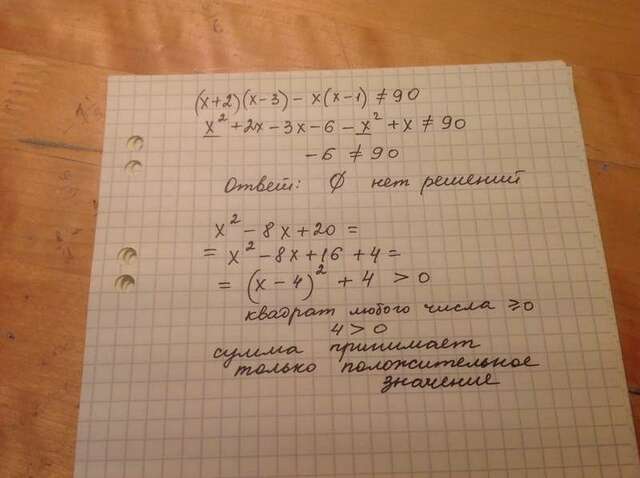 (x+2)(x-3) - x(x-1) ≠ 90
x² + 2x - 3x - 6 - x² + x ≠ 90
-6 ≠ 90
Ответ: Ø нет решений
x² - 8x + 20 =
= x² - 8x + 16 + 4 =
= (x - 4)² + 4 > 0
квадрат любого числа ⩾ 0
4 > 0
сумма принимает
только положительное
значение